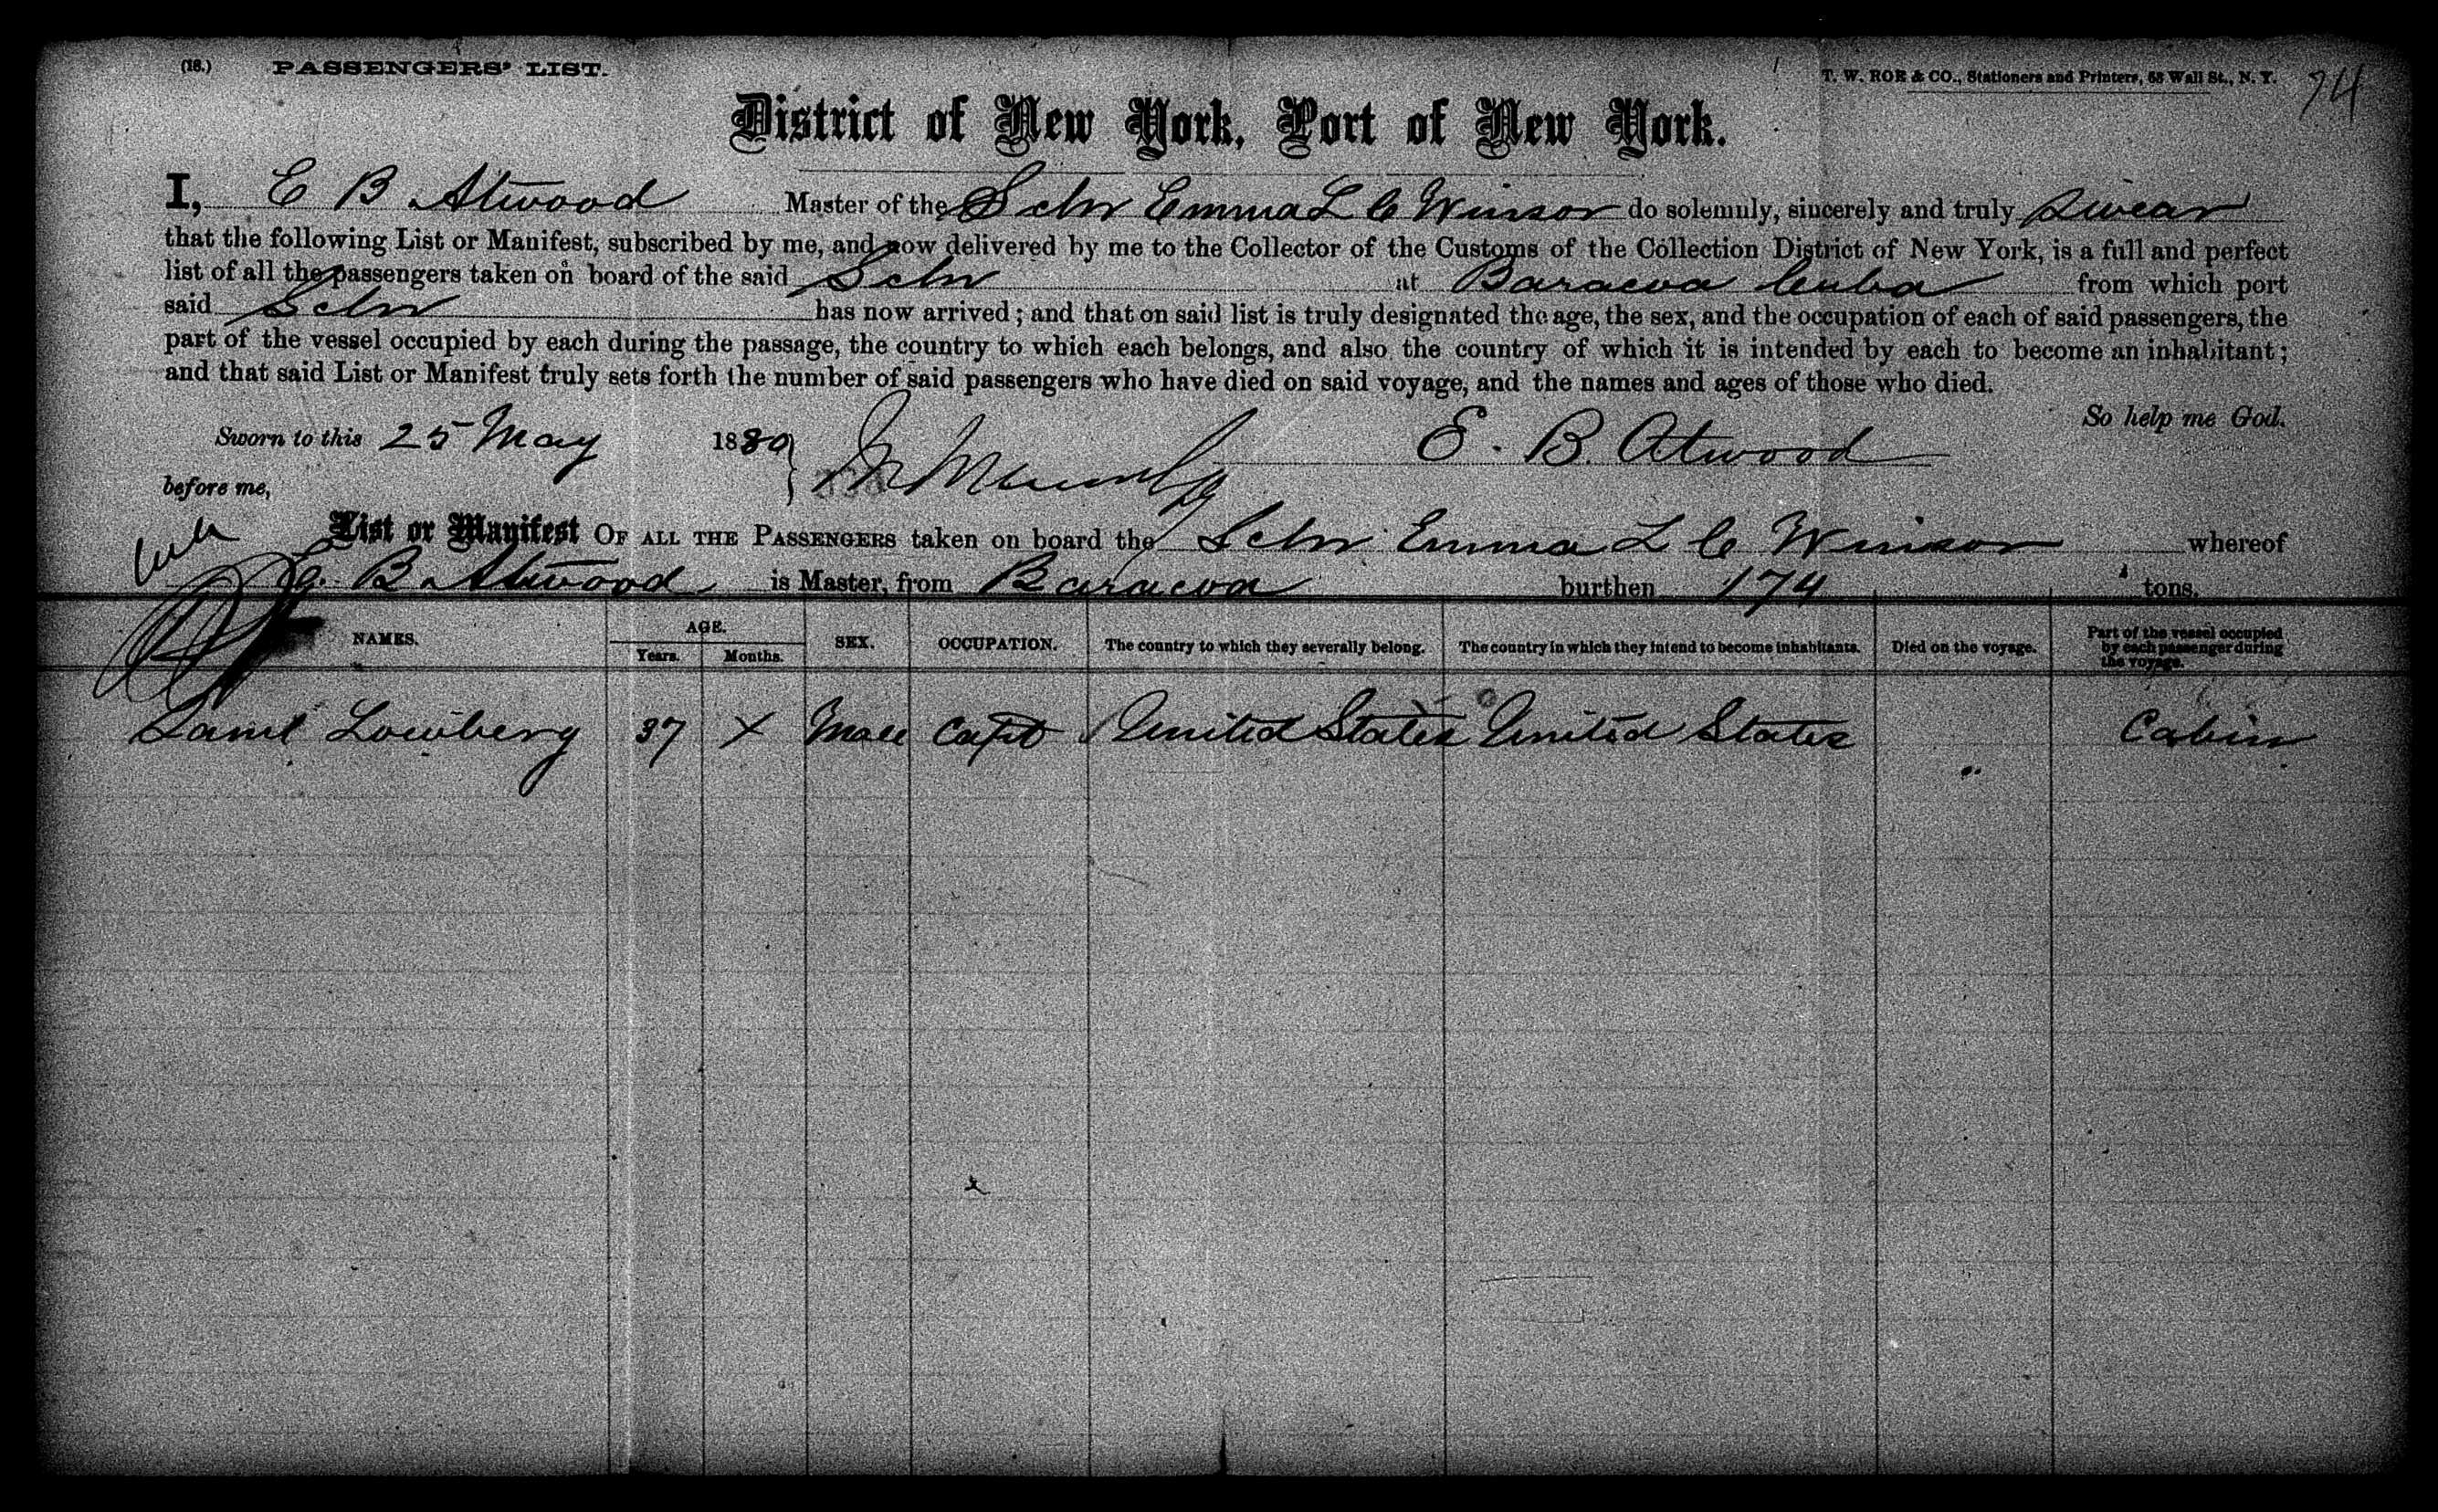 (16.) PASSENGERS' LIST. T. W. ROE & CO., Stationers and Printers, 53 Wall St., N. Y. 74
District of New York, Port of New York.
I, E B Atwood Master of the Schr Emma L C Winsor do solemnly, sincerely and truly Swear
that the following List or Manifest, subscribed by me, and now delivered by me to the Collector of the Customs of the Collection District of New York, is a full and perfect
list of all the passengers taken on board of the said Schr at Baracoa Cuba from which port
said Schr has now arrived; and that on said list is truly designated the age, the sex, and the occupation of each of said passengers, the
part of the vessel occupied by each during the passage, the country to which each belongs, and also the country of which it is intended by each to become an inhabitant;
and that said List or Manifest truly sets forth the number of said passengers who have died on said voyage, and the names and ages of those who died.
So help me God.
Sworn to this 25 May 1880 E. B. Atwood
before me,
List or Manifest OF ALL THE PASSENGERS taken on board the Schr Emma L C Winsor whereof
E. B. Atwood is Master, from Baracoa burthen 174 tons.
NAMES. AGE. Years. Months. SEX. OCCUPATION. The country to which they severally belong. The country in which they intend to become inhabitants. Died on the voyage. Part of the vessel occupied by each passenger during the voyage.
Saml Lowberg 37 X Male Capt United States United States Cabin